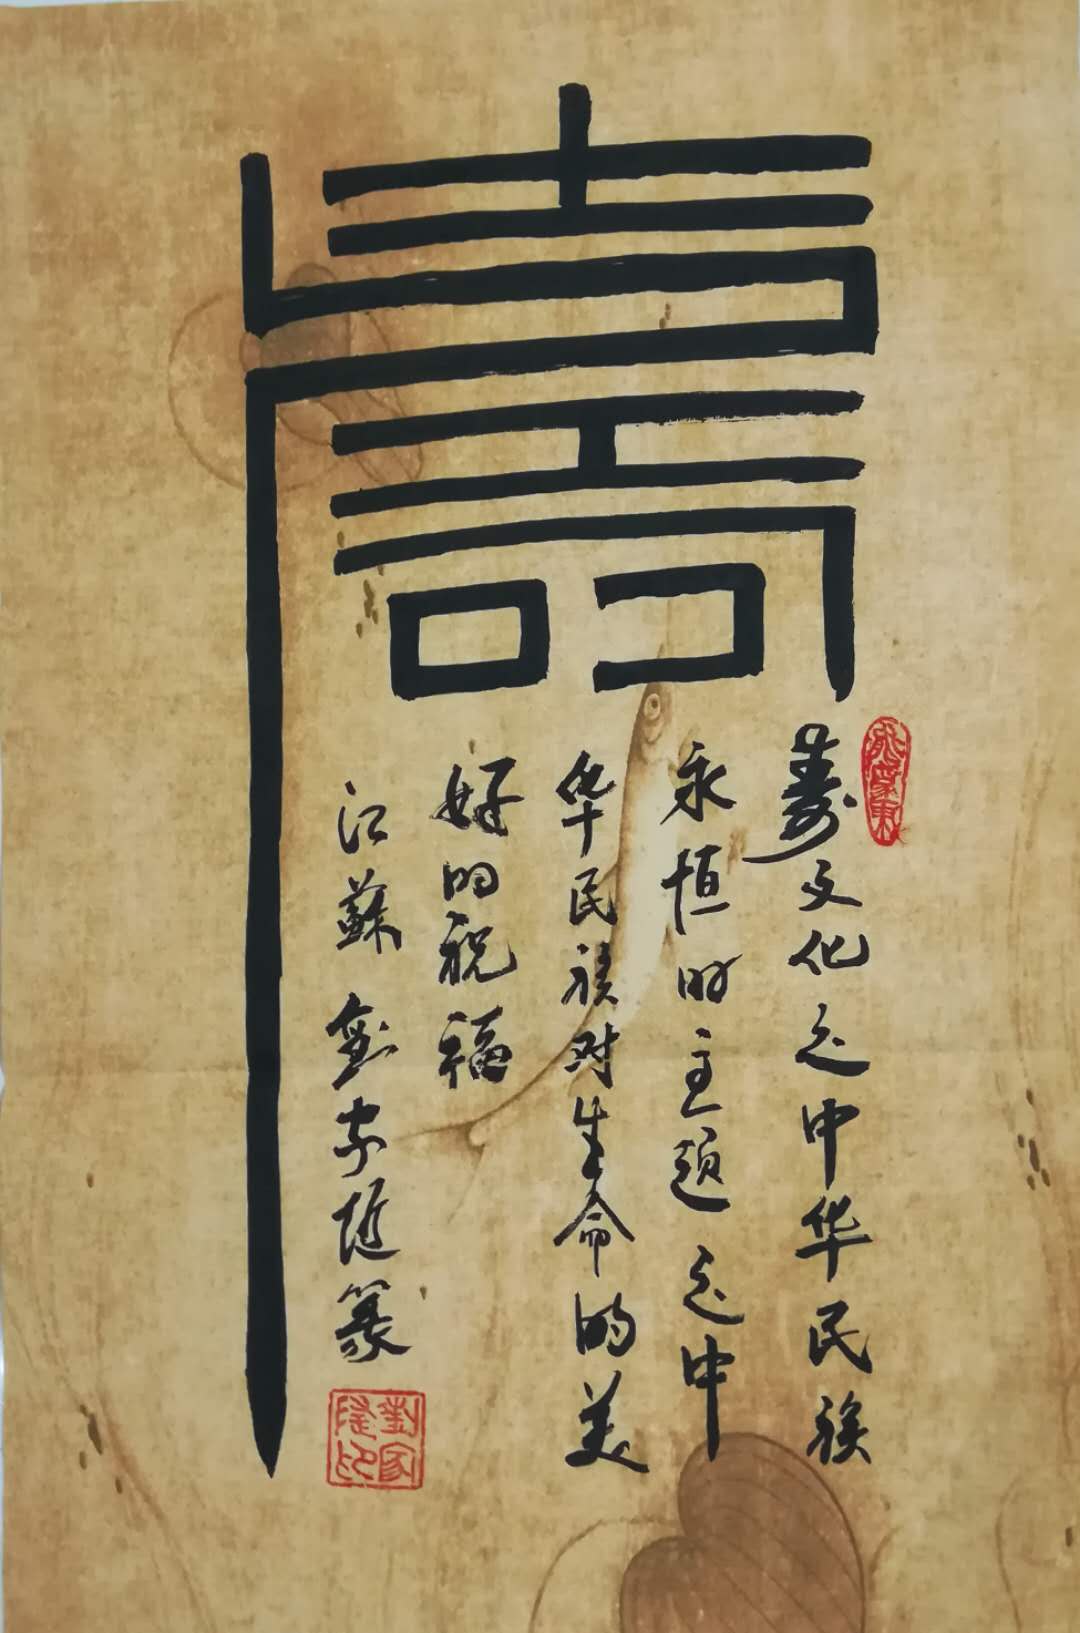 壽
寿文化是中华民族
永恒的主题是中
华民族对生命的美
好的祝福
江蘇劉家隆篆
劉家隆印